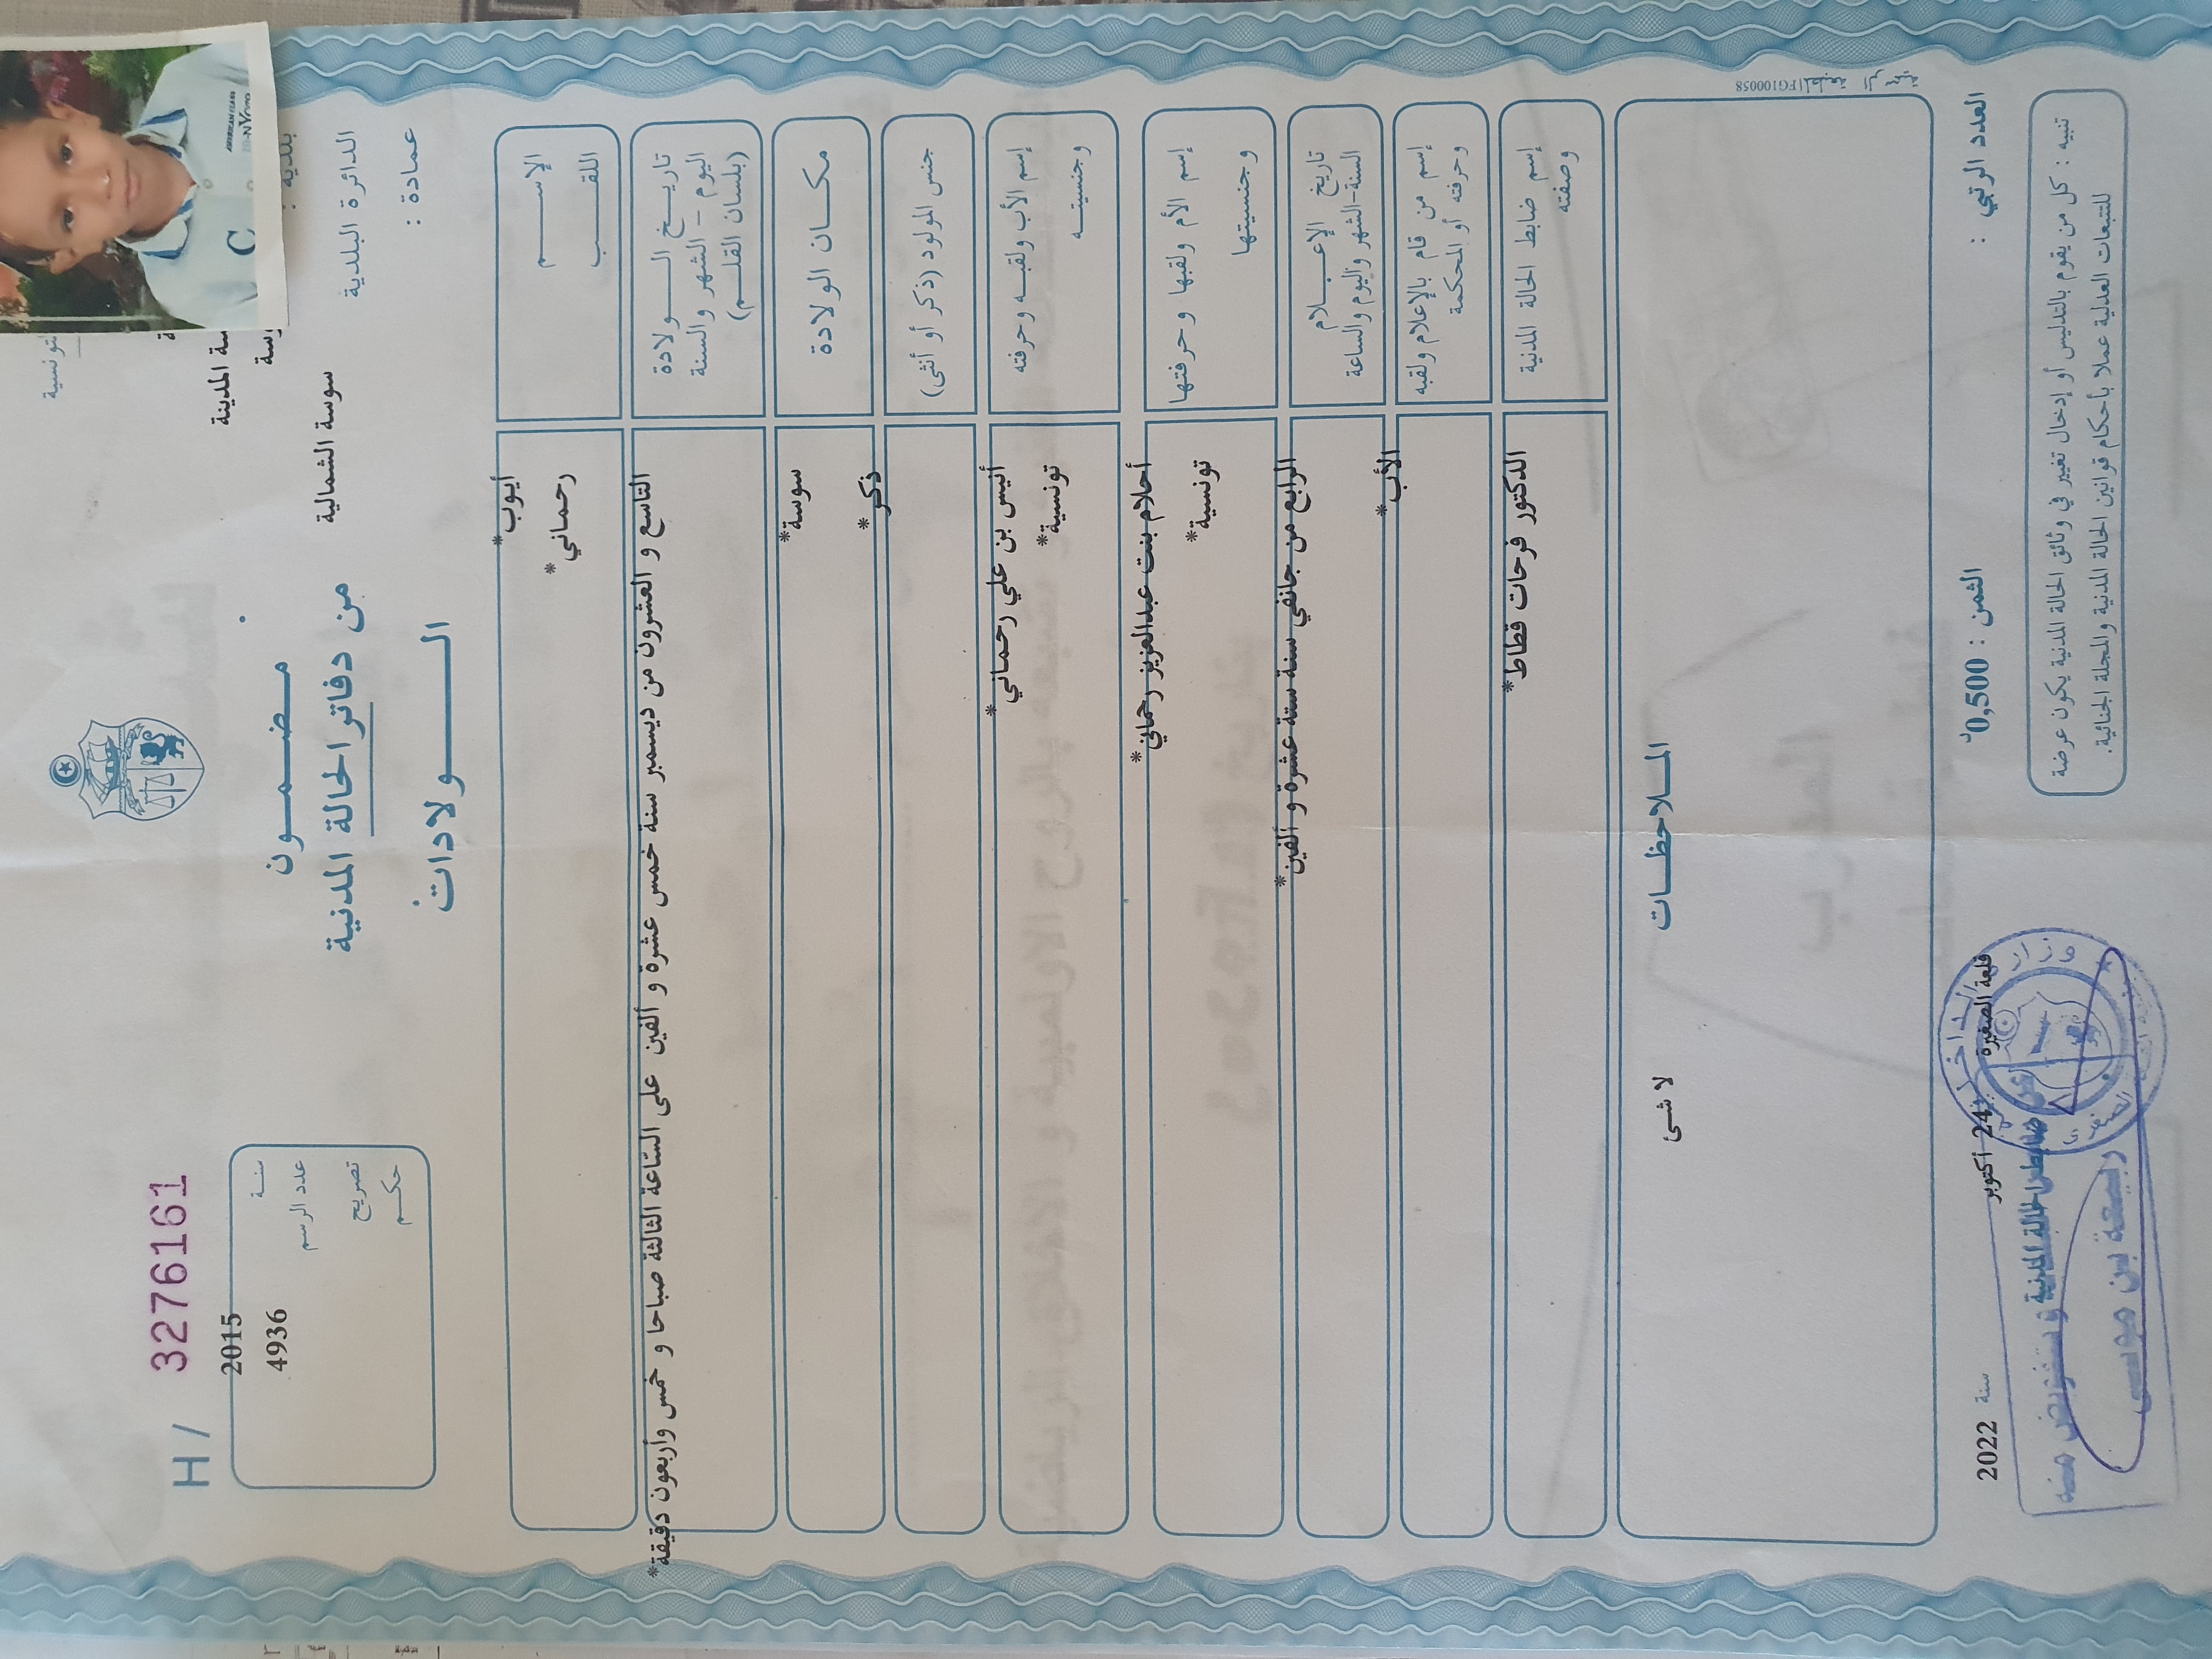 تونسية
سة المدينة
وسة
بلدية :
الدائرة البلدية
سوسة الشمالية
عمادة :
C
AMERICAN CLASS
مضمون
من دفاتر الحالة المدنية
الولادات
H / 3276161
سنة 2015
عدد الرسم 4936
تصريح
حكم
الإسم
أيوب*
اللقب
رحماني*
تاريخ الولادة
اليوم - الشهر والسنة
(بلسان القلم)
التاسع و العشرون من ديسمبر سنة خمس عشرة و ألفين على الساعة الثالثة صباحا و خمس وأربعون دقيقة*
مكان الولادة
سوسة*
جنس المولود (ذكر أو أنثى)
ذكر*
إسم الأب ولقبه وحرفته
وجنسيته
أنيس بن علي رحماني*
تونسية*
إسم الأم ولقبها وحرفتها
وجنسيتها
أحلام بنت عبدالعزيز رحماني*
تونسية*
تاريخ الإعلام
السنة-الشهر واليوم والساعة
الرابع من جانفي سنة ستة عشرة و ألفين*
إسم من قام بالإعلام ولقبه
وحرفته أو المحكمة
الأب*
إسم ضابط الحالة المدنية
وصفته
الدكتور فرحات قطاط*
الملاحظات
لا شئ
FG100058
العدد الرتبي :
الثمن : 0,500د
قلعة الصغيرة 24 أكتوبر سنة 2022
تنبيه : كل من يقوم بالتدليس أو إدخال تغيير في وثائق الحالة المدنية يكون عرضة
للتتبعات العدلية عملا بأحكام قوانين الحالة المدنية والمجلة الجنائية.
ضابط الحالة المدنية وبتفويض منه
ربيعة بن موسى